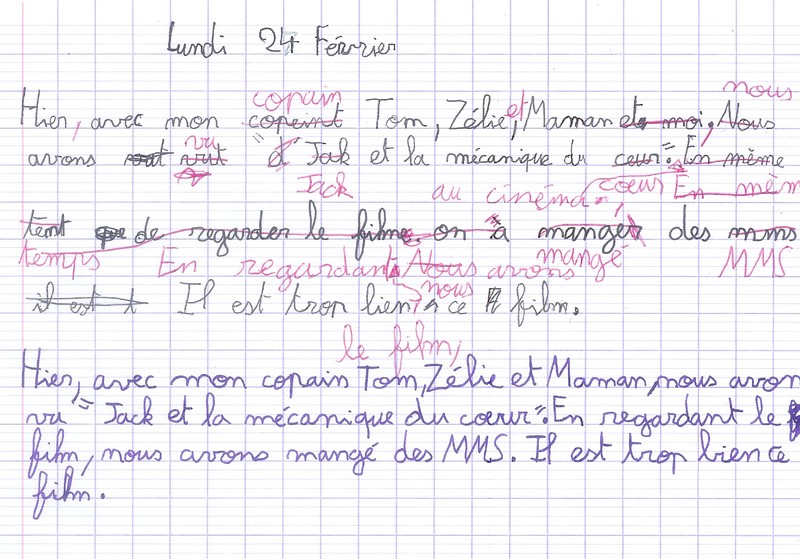 Lundi 24 Février
copain et nous
Hier, avec mon copeint Tom, Zélie, Maman et moi, Nous
vu
avons vut "d' Jak et la mécanique du cœur". En même
Jack au cinéma. cœur En mêm
temt de regarder le filme on a manger des mms
temps En regardant Nous avons mangé MMS
nous
il est t Il est trop bien ce film.
le film,
Hier, avec mon copain Tom, Zélie et Maman, nous avon
vu "Jack et la mécanique du cœur". En regardant le
film, nous avons mangé des MMS. Il est trop bien ce
film.